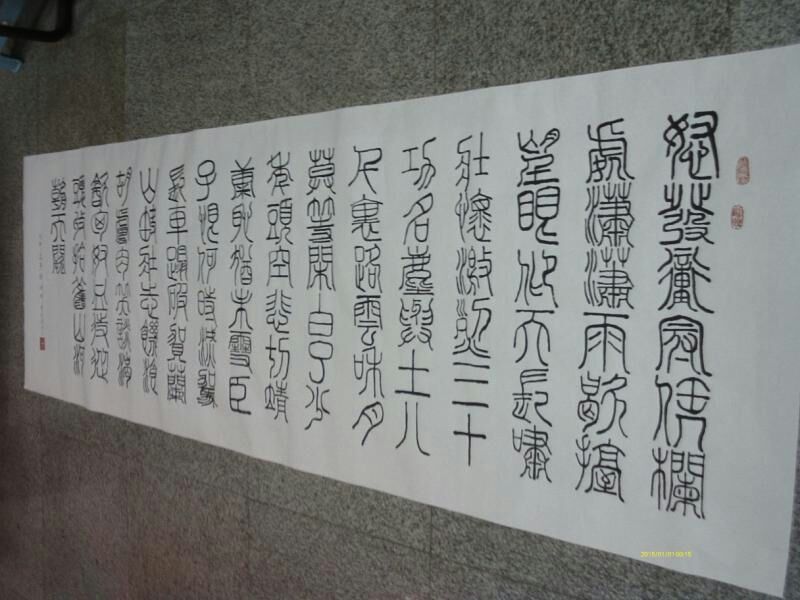 怒發衝冠凭欄
處瀟瀟雨歇擡
望眼仰天長嘯
壯懷激烈三十
功名塵與土八
千裏路雲和月
莫等閑白了少
年頭空悲切靖
康恥猶未雪臣
子恨何時滅駕
長車踏破賀蘭
山缺壯志饑餐
胡虜肉笑談渴
飲匈奴血待從
頭收拾舊山河
朝天闕
2015/01/01 00:15